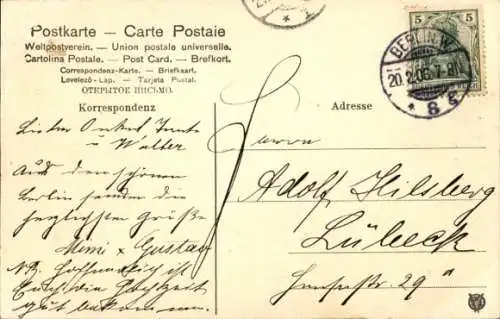 Postkarte — Carte Postale
Weltpostverein. — Union postale universelle.
Cartolina Postale. — Post Card. — Brefkort.
Correspondenz-Karte. — Briefkaart.
Levelező-Lap. — Tarjeta Postal.
ОТКРЫТОЕ ПИСЬМО.
Korrespondenz
Adresse
5 5
BERLIN W.
20.2.06. 7-8N.
* 8 g
Lieber Onkel Tante
u Walter
Aus dem schönen
Berlin senden die
herzlichsten Grüße
Mimi & Gustav
NB. Hoffentlich ist
Euch die Hochzeit
gut bekommen.
Herrn
Adolf Hilsberg
Lübeck
29ª